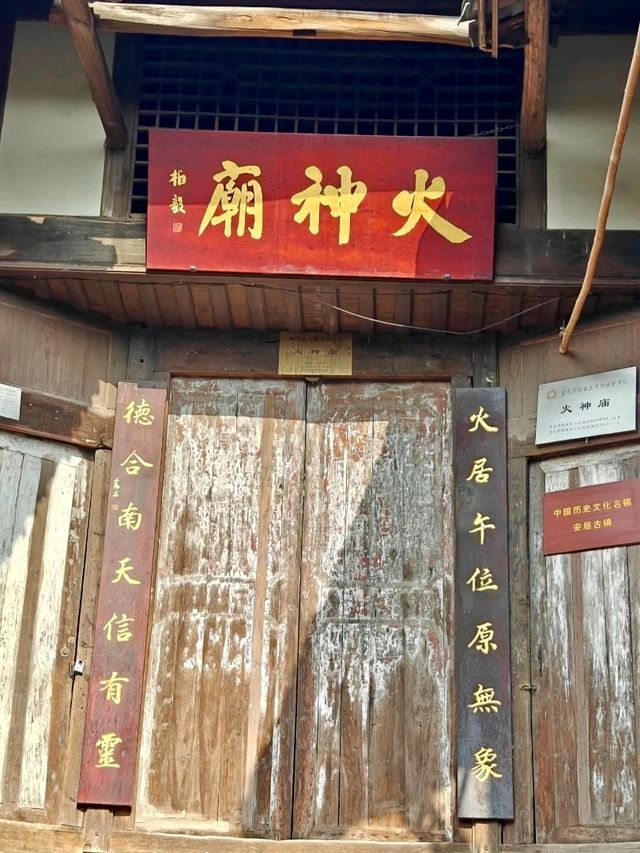 火神廟
柏毅
火神庙
火居午位原無象
德合南天信有靈
火神庙
中国历史文化名镇
安居古镇